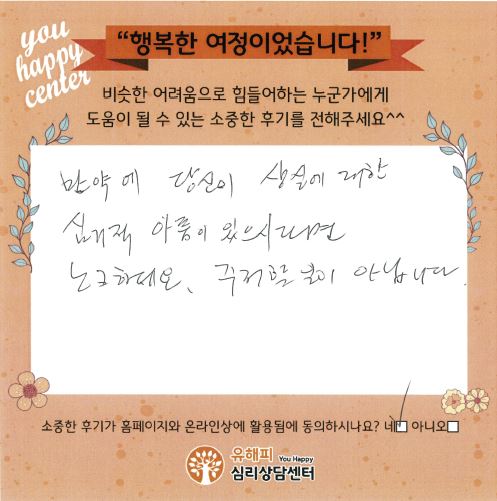 you
happy
center
“행복한 여정이었습니다!”
비슷한 어려움으로 힘들어하는 누군가에게
도움이 될 수 있는 소중한 후기를 전해주세요^^
만약에 당신이 상실에 대한
심리적 아픔이 있으시다면
노크하세요, 주저할 일이 아닙니다.
소중한 후기가 홈페이지와 온라인상에 활용됨에 동의하시나요? 네☑ 아니오□
유해피 You Happy
심리상담센터